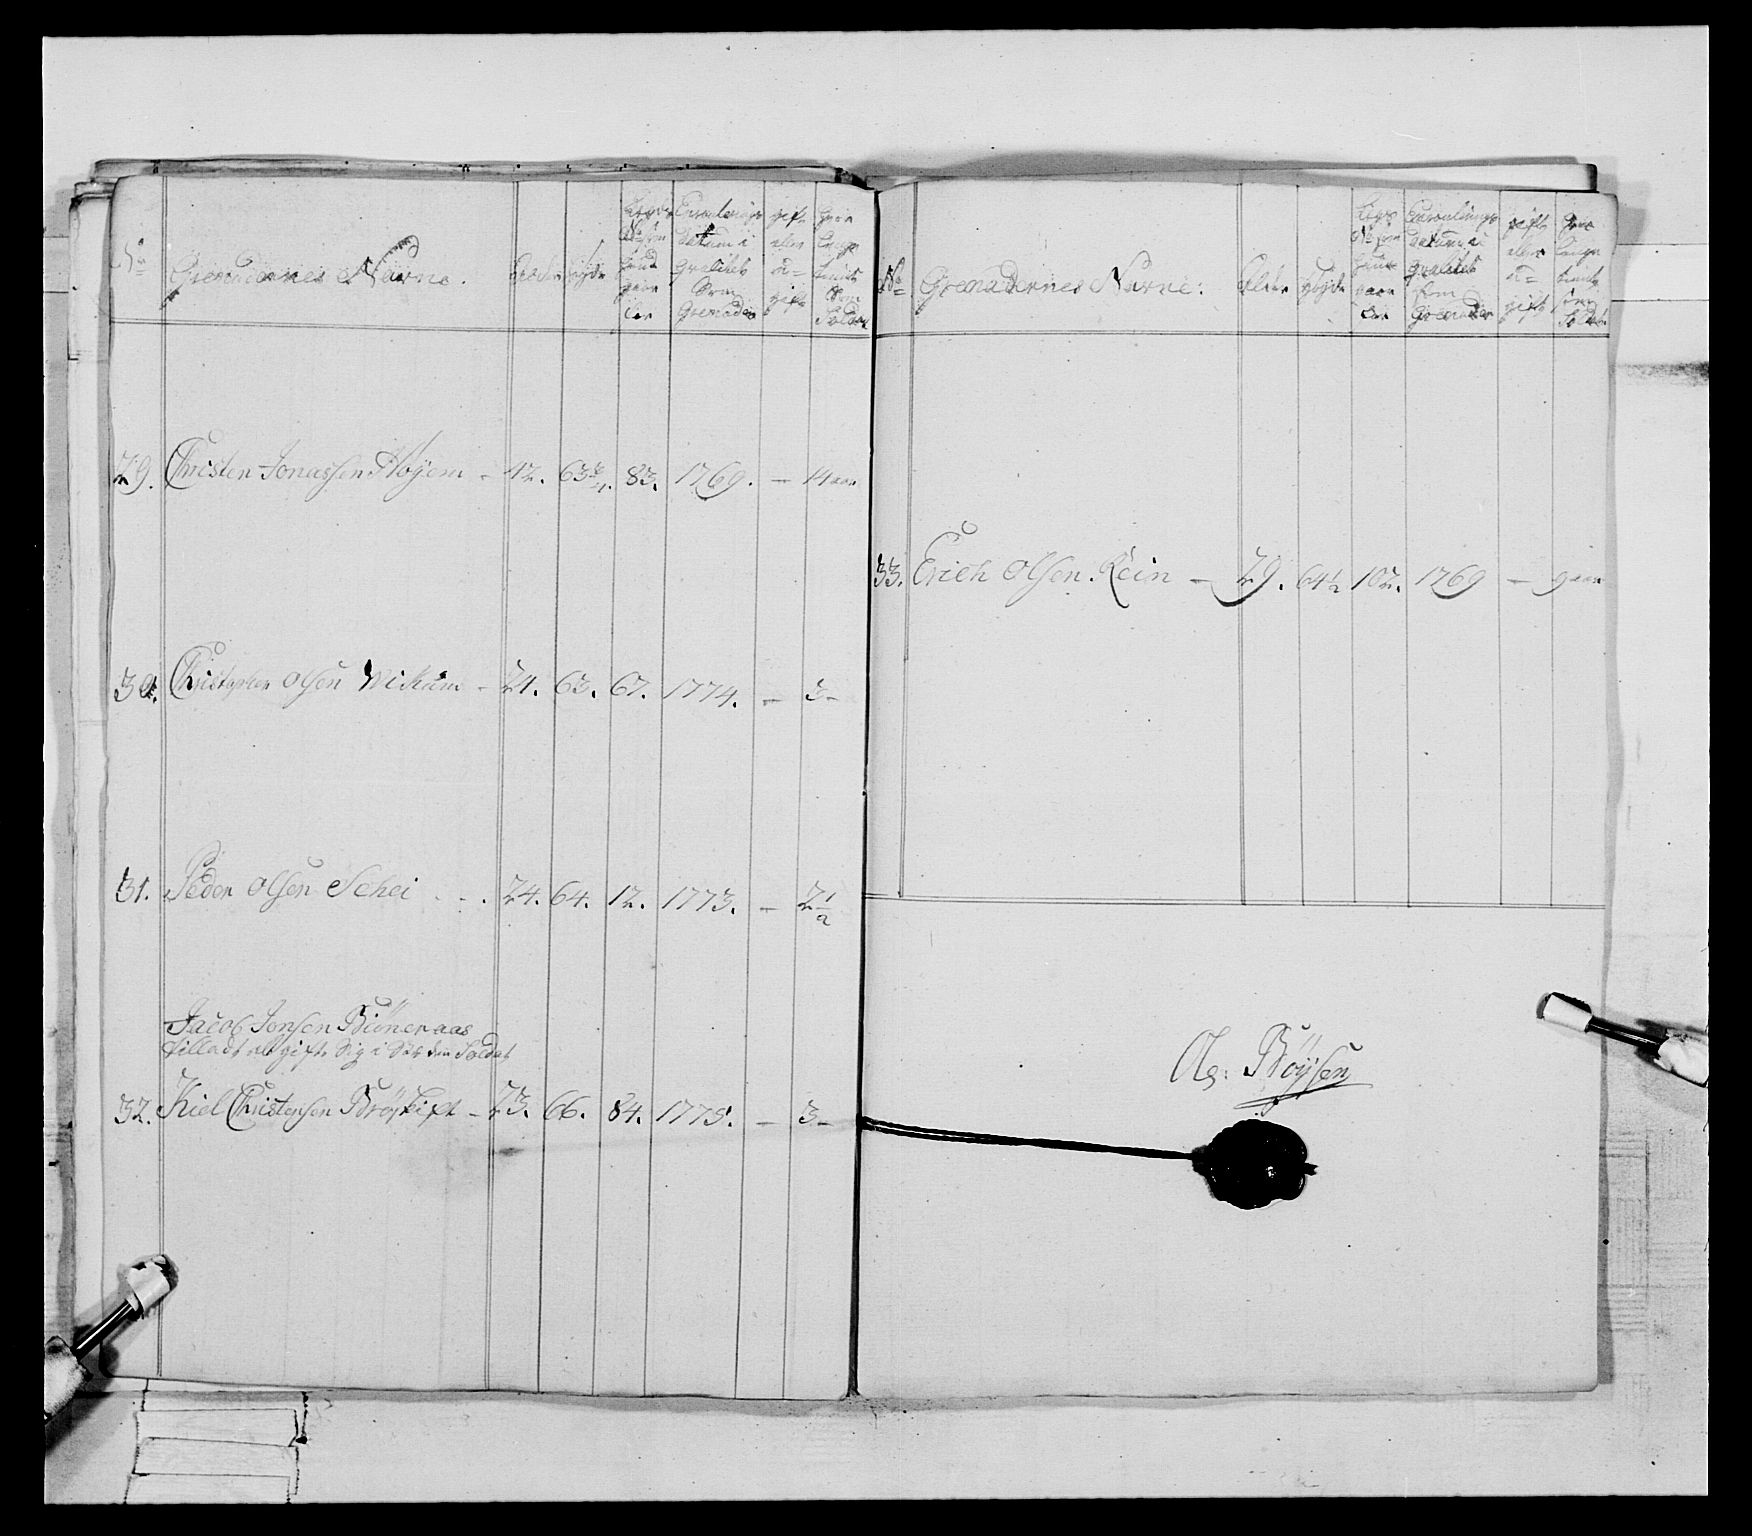 No
Grenaderernes Navne.
Alder
Høyde
Enroulerings
Datum i
Qvalitet
Som
Grenader
gift
eller
u=
gift
Hvor
Lenge
tient
Som
Soldat
29. Christen Jonassen Høyem - 42. 63 3/4. 83. 1769. — 14 aar
30. Christopher Olsen Wichum - 24. 63. 67. 1774. — 3 -
31. Peder Olsen Schei . . . 24. 64. 12. 1773. — 2 1/2
Jacob Jonsen Biöneraas
tilladt at gifte Sig i Sted den Soldat
32. Kiel Christensen Bröskift - 23. 66. 84. 1775. — 3 -
No
Grenadernes Navne:
Alder
Høyde
Legs
No som
Enroulerings
Datum i
Qvalitet
som
Grenader
gift
eller
u=
gift
Hvor
Lenge
tient
som
Soldat
33. Erich Olsen Rein — 29. 64 1/2 102. 1769 — 9 aar
Böysen